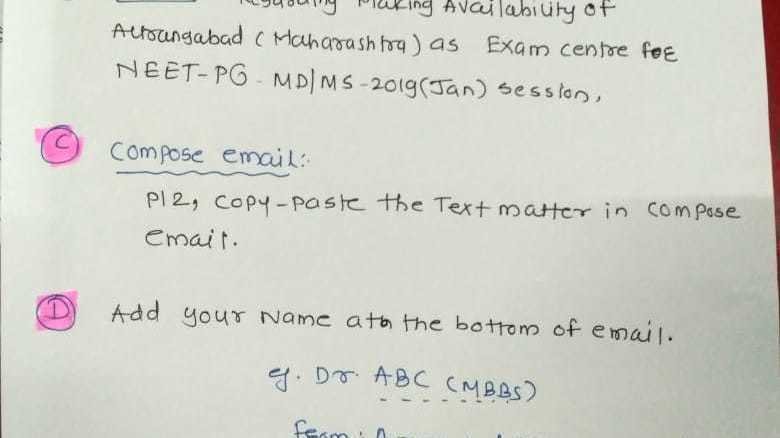 Regarding Making Availability of
Aurangabad (Maharashtra) as Exam centre for
NEET-PG - MD/MS - 2019 (Jan) session,
C Compose email:
Plz, copy-paste the Text matter in compose
email.
D Add your Name at the bottom of email.
eg. Dr. ABC (MBBS)
from: